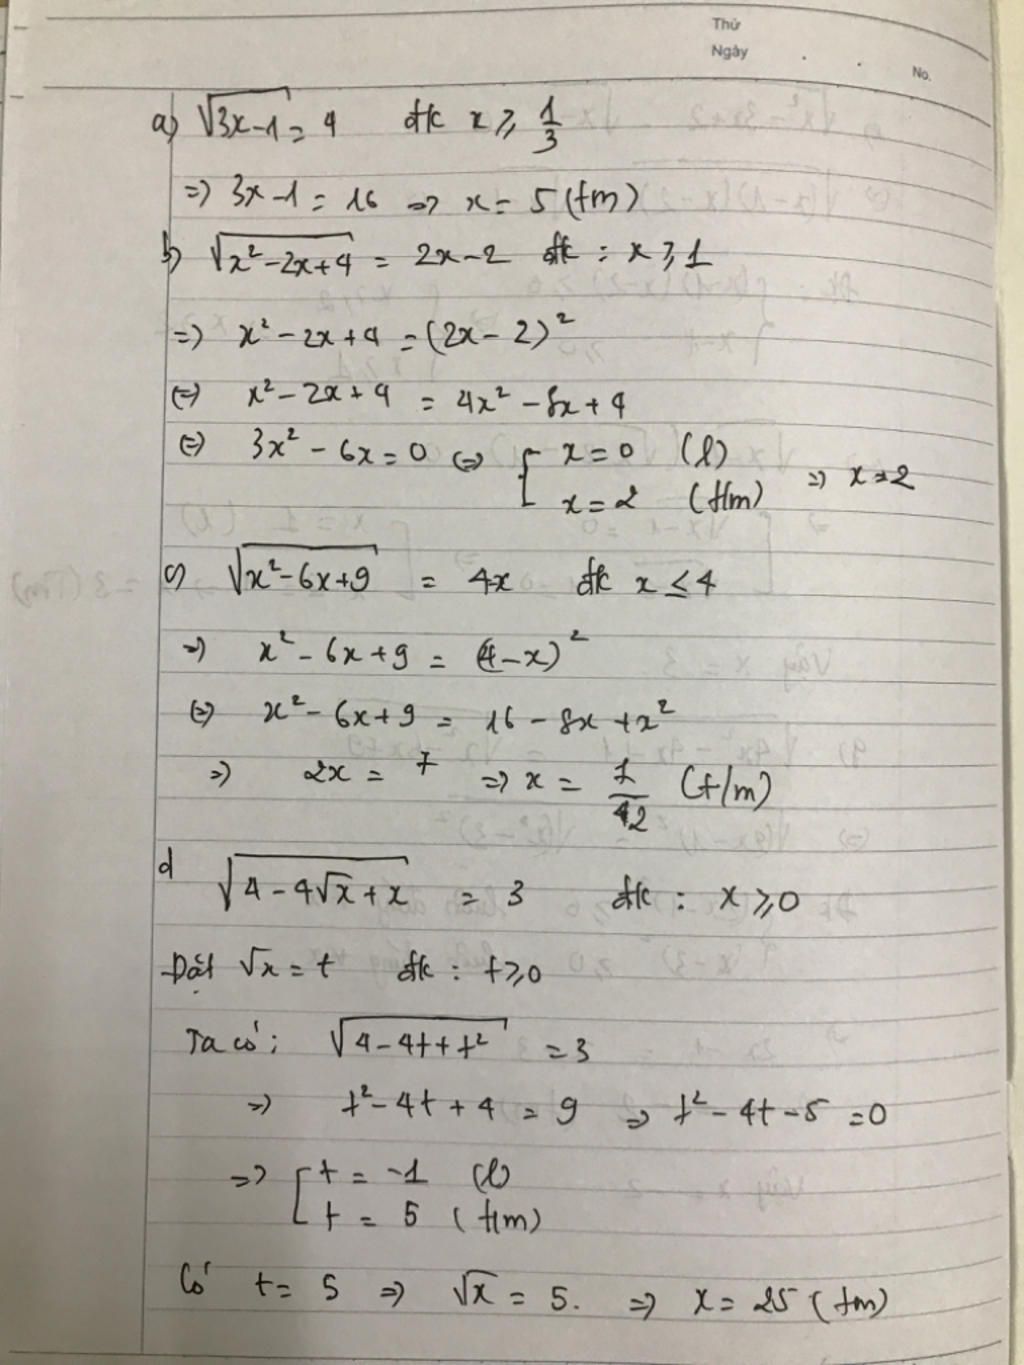 Thứ
Ngày
No.
a) √(3x-1) = 4 đk x ⩾ 1/3
=> 3x-1 = 16 => x = 5 (tm)
b) √(x²-2x+4) = 2x-2 đk : x ⩾ 1
=> x² - 2x + 4 = (2x - 2)²
(=) x² - 2x + 4 = 4x² - 8x + 4
(=) 3x² - 6x = 0 (=) [ x = 0 (l)
x = 2 (t/m) => x = 2
c) √(x²-6x+9) = 4-x đk x ≤ 4
=> x² - 6x + 9 = (4-x)²
(=) x² - 6x + 9 = 16 - 8x + x²
=> 2x = 7 => x = 7/2 (t/m)
d √(4 - 4√x + x) = 3 đk : x ⩾ 0
Đặt √x = t đk : t ⩾ 0
Ta có: √(4 - 4t + t²) = 3
=> t² - 4t + 4 = 9 => t² - 4t - 5 = 0
=> [ t = -1 (l)
t = 5 (t/m)
Có t = 5 => √x = 5. => x = 25 (tm)